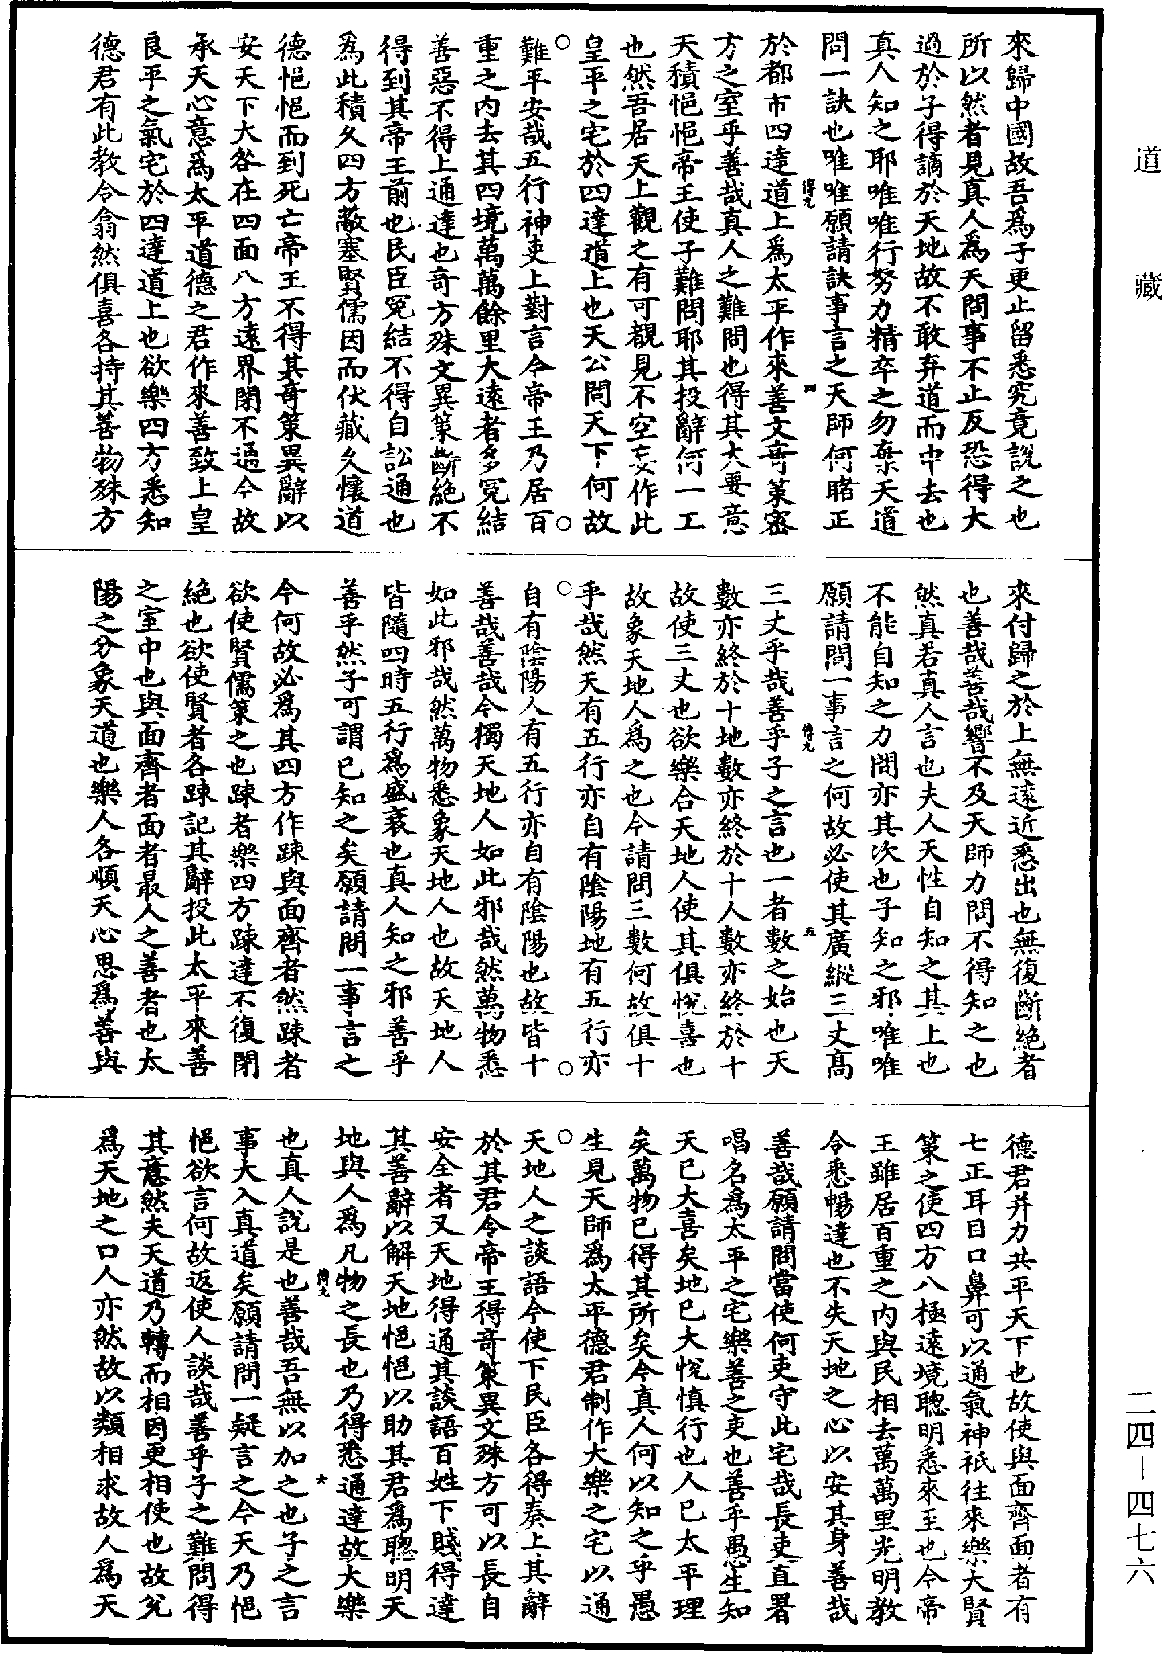 道藏
來歸中國故吾爲子更止留悉究竟說之也
所以然者見真人爲天問事不止反恐得大
過於子得謫於天地故不敢弃道而中去也
真人知之耶唯唯行努力精卒之勿棄天道
問一訣也唯唯願請訣事言之天師何睹正
於都市四達道上爲太平作來善文奇策密
方之室乎善哉真人之難問也得其大要意
天積悒悒帝王使子難問耶其投辭何一工
也然吾居天上觀之有可覩見不空妄作此
皇平之宅於四達道上也天公問天下何故
難平安哉五行神吏上對言今帝王乃居百
重之内去其四境萬萬餘里大遠者多冤結
善惡不得上通達也奇方殊文異策斷絶不
得到其帝王前也民臣冤結不得自訟通也
爲此積久四方蔽塞賢儒因而伏藏久懷道
德悒悒而到死亡帝王不得其奇策異辭以
安天下大咎在四面八方遠界閉不通今故
承天心意爲太平道德之君作來善致上皇
良平之氣宅於四達道上也欲樂四方悉知
德君有此教令翕然俱喜各持其善物殊方
來付歸之於上無遠近悉出也無復斷絶者
也善哉善哉響不及天師力問不得知之也
然真若真人言也夫人天性自知之其上也
不能自知之力問亦其次也子知之邪唯唯
願請問一事言之何故必使其廣縱三丈高
三丈乎哉善乎子之言也一者數之始也天
數亦終於十地數亦終於十人數亦終於十
故使三丈也欲樂合天地人使其俱悅喜也
故象天地人爲之也今請問三數何故俱十
乎哉然天有五行亦自有陰陽地有五行亦
自有陰陽人有五行亦自有陰陽也故皆十
善哉善哉今獨天地人如此邪哉然萬物悉
如此邪哉然萬物悉象天地人也故天地人
皆隨四時五行爲盛衰也真人知之邪善乎
善乎然子可謂已知之矣願請問一事言之
今何故必爲其四方作疎與面齊者然疎者
欲使賢儒策之也疎者樂四方疎達不復閉
絶也欲使賢者各疎記其辭投此太平來善
之室中也與面齊者面者最人之善者也太
陽之分象天道也樂人各順天心思爲善與
德君并力共平天下也故使與面齊面者有
七正耳目口鼻可以通氣神祇往來樂大賢
策之使四方八極遠境聰明悉來至也今帝
王雖居百重之内與民相去萬萬里光明教
令悉暢達也不失天地之心以安其身善哉
善哉願請問當使何吏守此宅哉長吏直署
唱名爲太平之宅樂善之吏也善乎愚生知
天已大喜矣地已大悅慎行也人已太平理
矣萬物已得其所矣今真人何以知之乎愚
生見天師爲太平德君制作大樂之宅以通
天地人之談語今使下民臣各得奏上其辭
於其君令帝王得奇策異文殊方可以長自
安全者又天地得通其談語百姓下賤得達
其善辭以解天地悒悒以助其君爲聰明天
地與人爲凡物之長也乃得悉通達故大樂
也真人說是也善哉吾無以加之也子之言
事大入真道矣願請問一疑言之今天乃悒
悒欲言何故返使人談哉善乎子之難問得
其意然夫天道乃轉而相因更相使也故兊
爲天地之口人亦然故以類相求故人爲天
二四—四七六